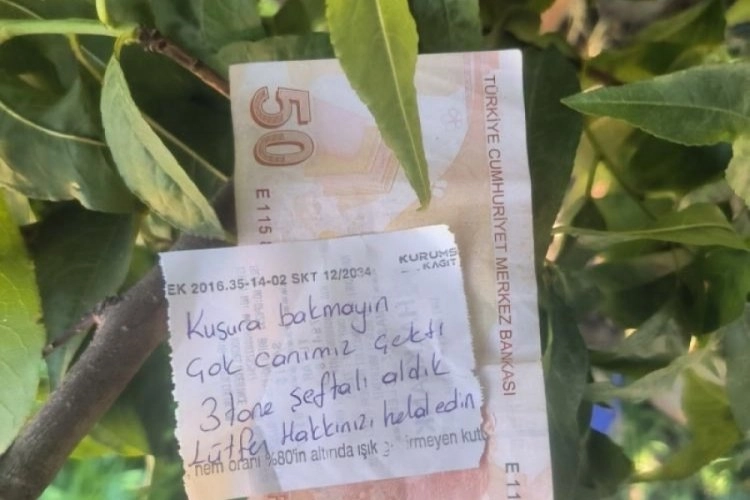 50
TÜRKİYE CUMHURİYET MERKEZ BANKASI
E 115
KURUMS
KAĞIT
EK 2016.35-14-02 SKT 12/2034
Kusura bakmayın
Çok canımız çekti
3 tane şeftali aldık
Lütfen Hakkınızı helal edin
nem oranı %80'in altında ışık g irmeyen kutu
E 11